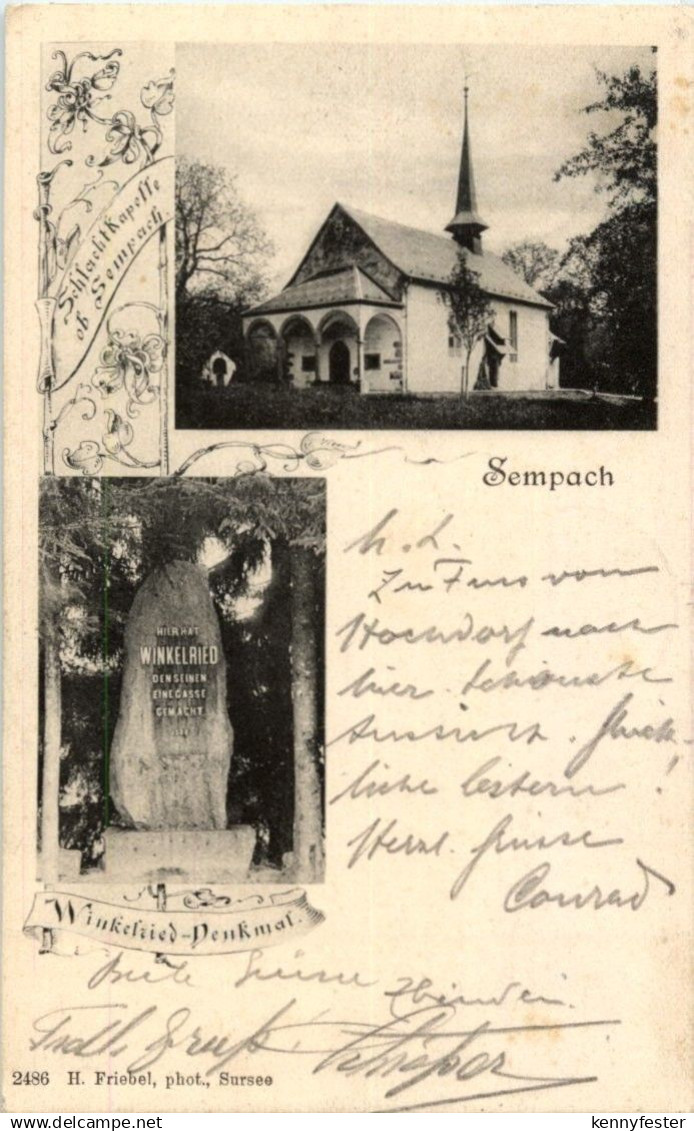 Schlacht Kapelle
ob Sempach
Sempach
HIER HAT
WINKELRIED
DEN SEINEN
EINE GASSE
GEMACHT
Zu Fuss von
Hochdorf nach
hier. Schönste
Aussicht. Glück-
liche
Herzl. Grüsse
Conrad
Winkelried-Denkmal.
Beste Grüsse
Gruß
2486 H. Friebel, phot., Sursee
delcampe.net
kennyfester